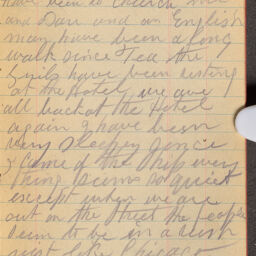 have been to church
and Dan and an English
man have been a long
walk since Tea the
Girls have been resting
at the Hotel, we are
all back at the Hotel
again I have been
very sleepy since
I came of the ship every
thing seems so quiet
except when we are
out on the street the people
seem to be in a rush
just like Chicago